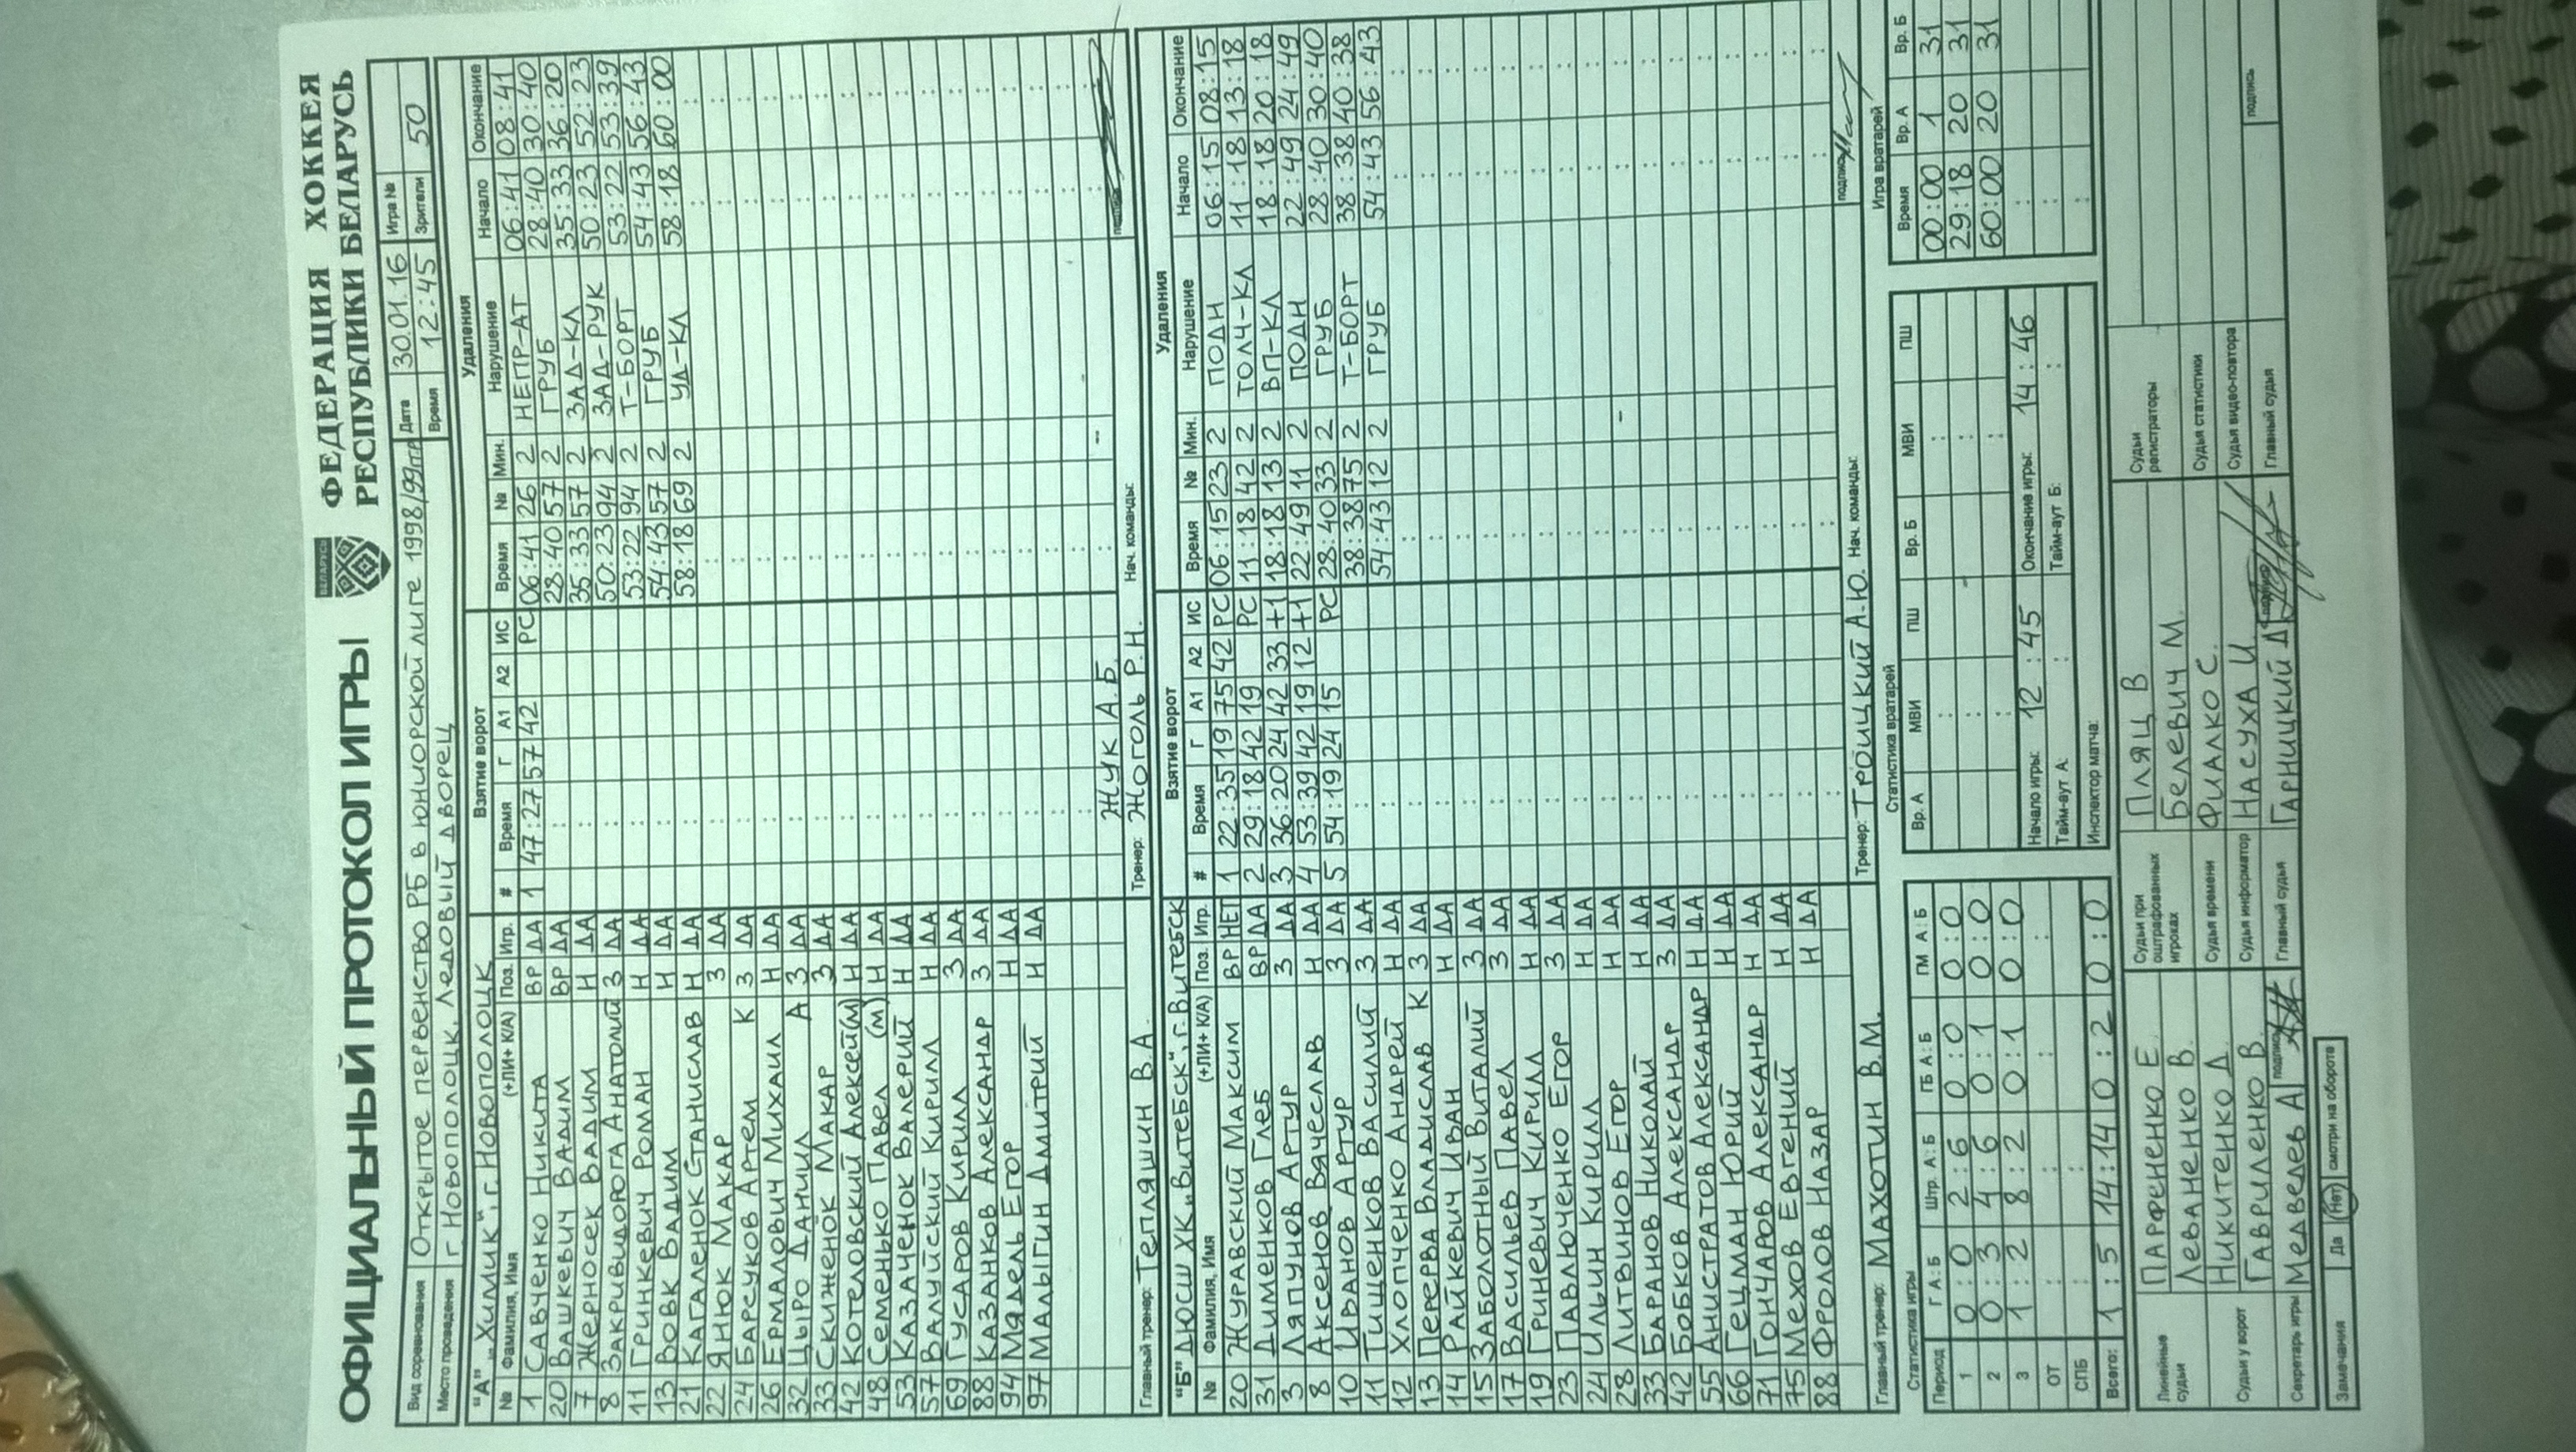 ОФИЦИАЛЬНЫЙ ПРОТОКОЛ ИГРЫ
БЕЛАРУСЬ
ФЕДЕРАЦИЯ ХОККЕЯ
РЕСПУБЛИКИ БЕЛАРУСЬ
Вид соревнования Открытое первенство РБ в юниорской лиге 1998/99гр Дата 30.01.16 Игра №
Место проведения г. Новополоцк, Ледовый дворец Время 12:45 Зрители 50
"А" „Химик", г. Новополоцк Взятие ворот Удаления
№ Фамилия, Имя (+ЛИ+ К/А) Поз. Игр. # Время Г А1 А2 ИС Время № Мин. Нарушение Начало Окончание
1 Савченко Никита ВР ДА 1 47:27 57 42 РС 06:41 26 2 НЕПР-АТ 06:41 08:41
20 Вашкевич Вадим ВР ДА 28:40 57 2 ГРУБ 28:40 30:40
7 Жерносек Вадим Н ДА 35:33 57 2 ЗАД-КЛ 35:33 36:20
8 Закривидорога Анатолий З ДА 50:23 94 2 ЗАД-РУК 50:23 52:23
11 Гринкевич Роман Н ДА 53:22 94 2 Т-БОРТ 53:22 53:39
13 Вовк Вадим Н ДА 54:43 57 2 ГРУБ 54:43 56:43
21 Кагаленок Станислав Н ДА 58:18 69 2 УД-КЛ 58:18 60:00
22 Янюк Макар З ДА
24 Барсуков Артем К З ДА
26 Ермалович Михаил Н ДА
32 Цыро Даниил А З ДА
33 Скиженок Макар З ДА
42 Котеловский Алексей (М) Н ДА
48 Семенько Павел (М) Н ДА
53 Казаченок Валерий Н ДА
57 Валуйский Кирилл Н ДА
69 Гусаров Кирилл З ДА
88 Казанков Александр З ДА
94 Мядель Егор Н ДА
97 Малыгин Дмитрий Н ДА
Жук А.Б.
Главный тренер: Тепляшин В.А. Тренер: Жоголь Р.Н. Нач. команды:
"Б" ДЮСШ ХК „Витебск", г. Витебск Взятие ворот Удаления
№ Фамилия, Имя (+ЛИ+ К/А) Поз. Игр. # Время Г А1 А2 ИС Время № Мин. Нарушение Начало Окончание
20 Журавский Максим ВР НЕТ 1 22:35 19 75 42 РС 06:15 23 2 ПОДН 06:15 08:15
31 Дименков Глеб ВР ДА 2 29:18 42 19 РС 11:18 42 2 ТОЛЧ-КЛ 11:18 13:18
3 Ляпунов Артур З ДА 3 36:20 24 42 33 +1 18:18 13 2 ВП-КЛ 18:18 20:18
8 Аксенов Вячеслав Н ДА 4 53:39 42 19 12 +1 22:49 11 2 ПОДН 22:49 24:49
10 Иванов Артур З ДА 5 54:19 24 15 РС 28:40 33 2 ГРУБ 28:40 30:40
11 Тищенков Василий З ДА 38:38 75 2 Т-БОРТ 38:38 40:38
12 Хлопченко Андрей Н ДА 54:43 12 2 ГРУБ 54:43 56:43
13 Перерва Владислав К З ДА
14 Райкевич Иван Н ДА
15 Заболотный Виталий З ДА
17 Васильев Павел З ДА
19 Гриневич Кирилл Н ДА
23 Павлюченко Егор З ДА
24 Ильин Кирилл Н ДА
28 Литвинов Егор Н ДА
33 Баранов Николай Н ДА
42 Бобков Александр З ДА
55 Анистратов Александр Н ДА
66 Гецман Юрий Н ДА
71 Гончаров Александр Н ДА
75 Мехов Евгений Н ДА
88 Фролов Назар Н ДА
Главный тренер: Махотин В.М. Тренер: Троицкий А.Ю. Нач. команды: подпись
Статистика игры Статистика вратарей Игра вратарей
Период Г А:Б Штр. А:Б ГБ А:Б ГМ А:Б Вр. А МВИ ПШ Вр. Б МВИ ПШ Время Вр. А Вр. Б
1 0:0 2:6 0:0 0:0 00:00 1 31
2 0:3 4:6 0:1 0:0 29:18 20 31
3 1:2 8:2 0:1 0:0 60:00 20 31
ОТ
СПБ
Всего: 1:5 14:14 0:2 0:0
Начало игры: 12:45 Окончание игры: 14:46
Тайм-аут А: Тайм-аут Б:
Инспектор матча:
Линейные судьи Парфененко Е. Судьи при оштрафованных игроках Пляц В Судьи регистраторы
Леваненко В. Белевич М.
Судьи у ворот Никитенко Д. Судья времени Фиалко С. Судья статистики
Гавриленко В. Судья информатор Насуха И. Судья видео-повтора
Секретарь игры Медведев А подпись Главный судья Гарницкий Д подпись Главный судья подпись
Замечания Да Нет смотри на обороте